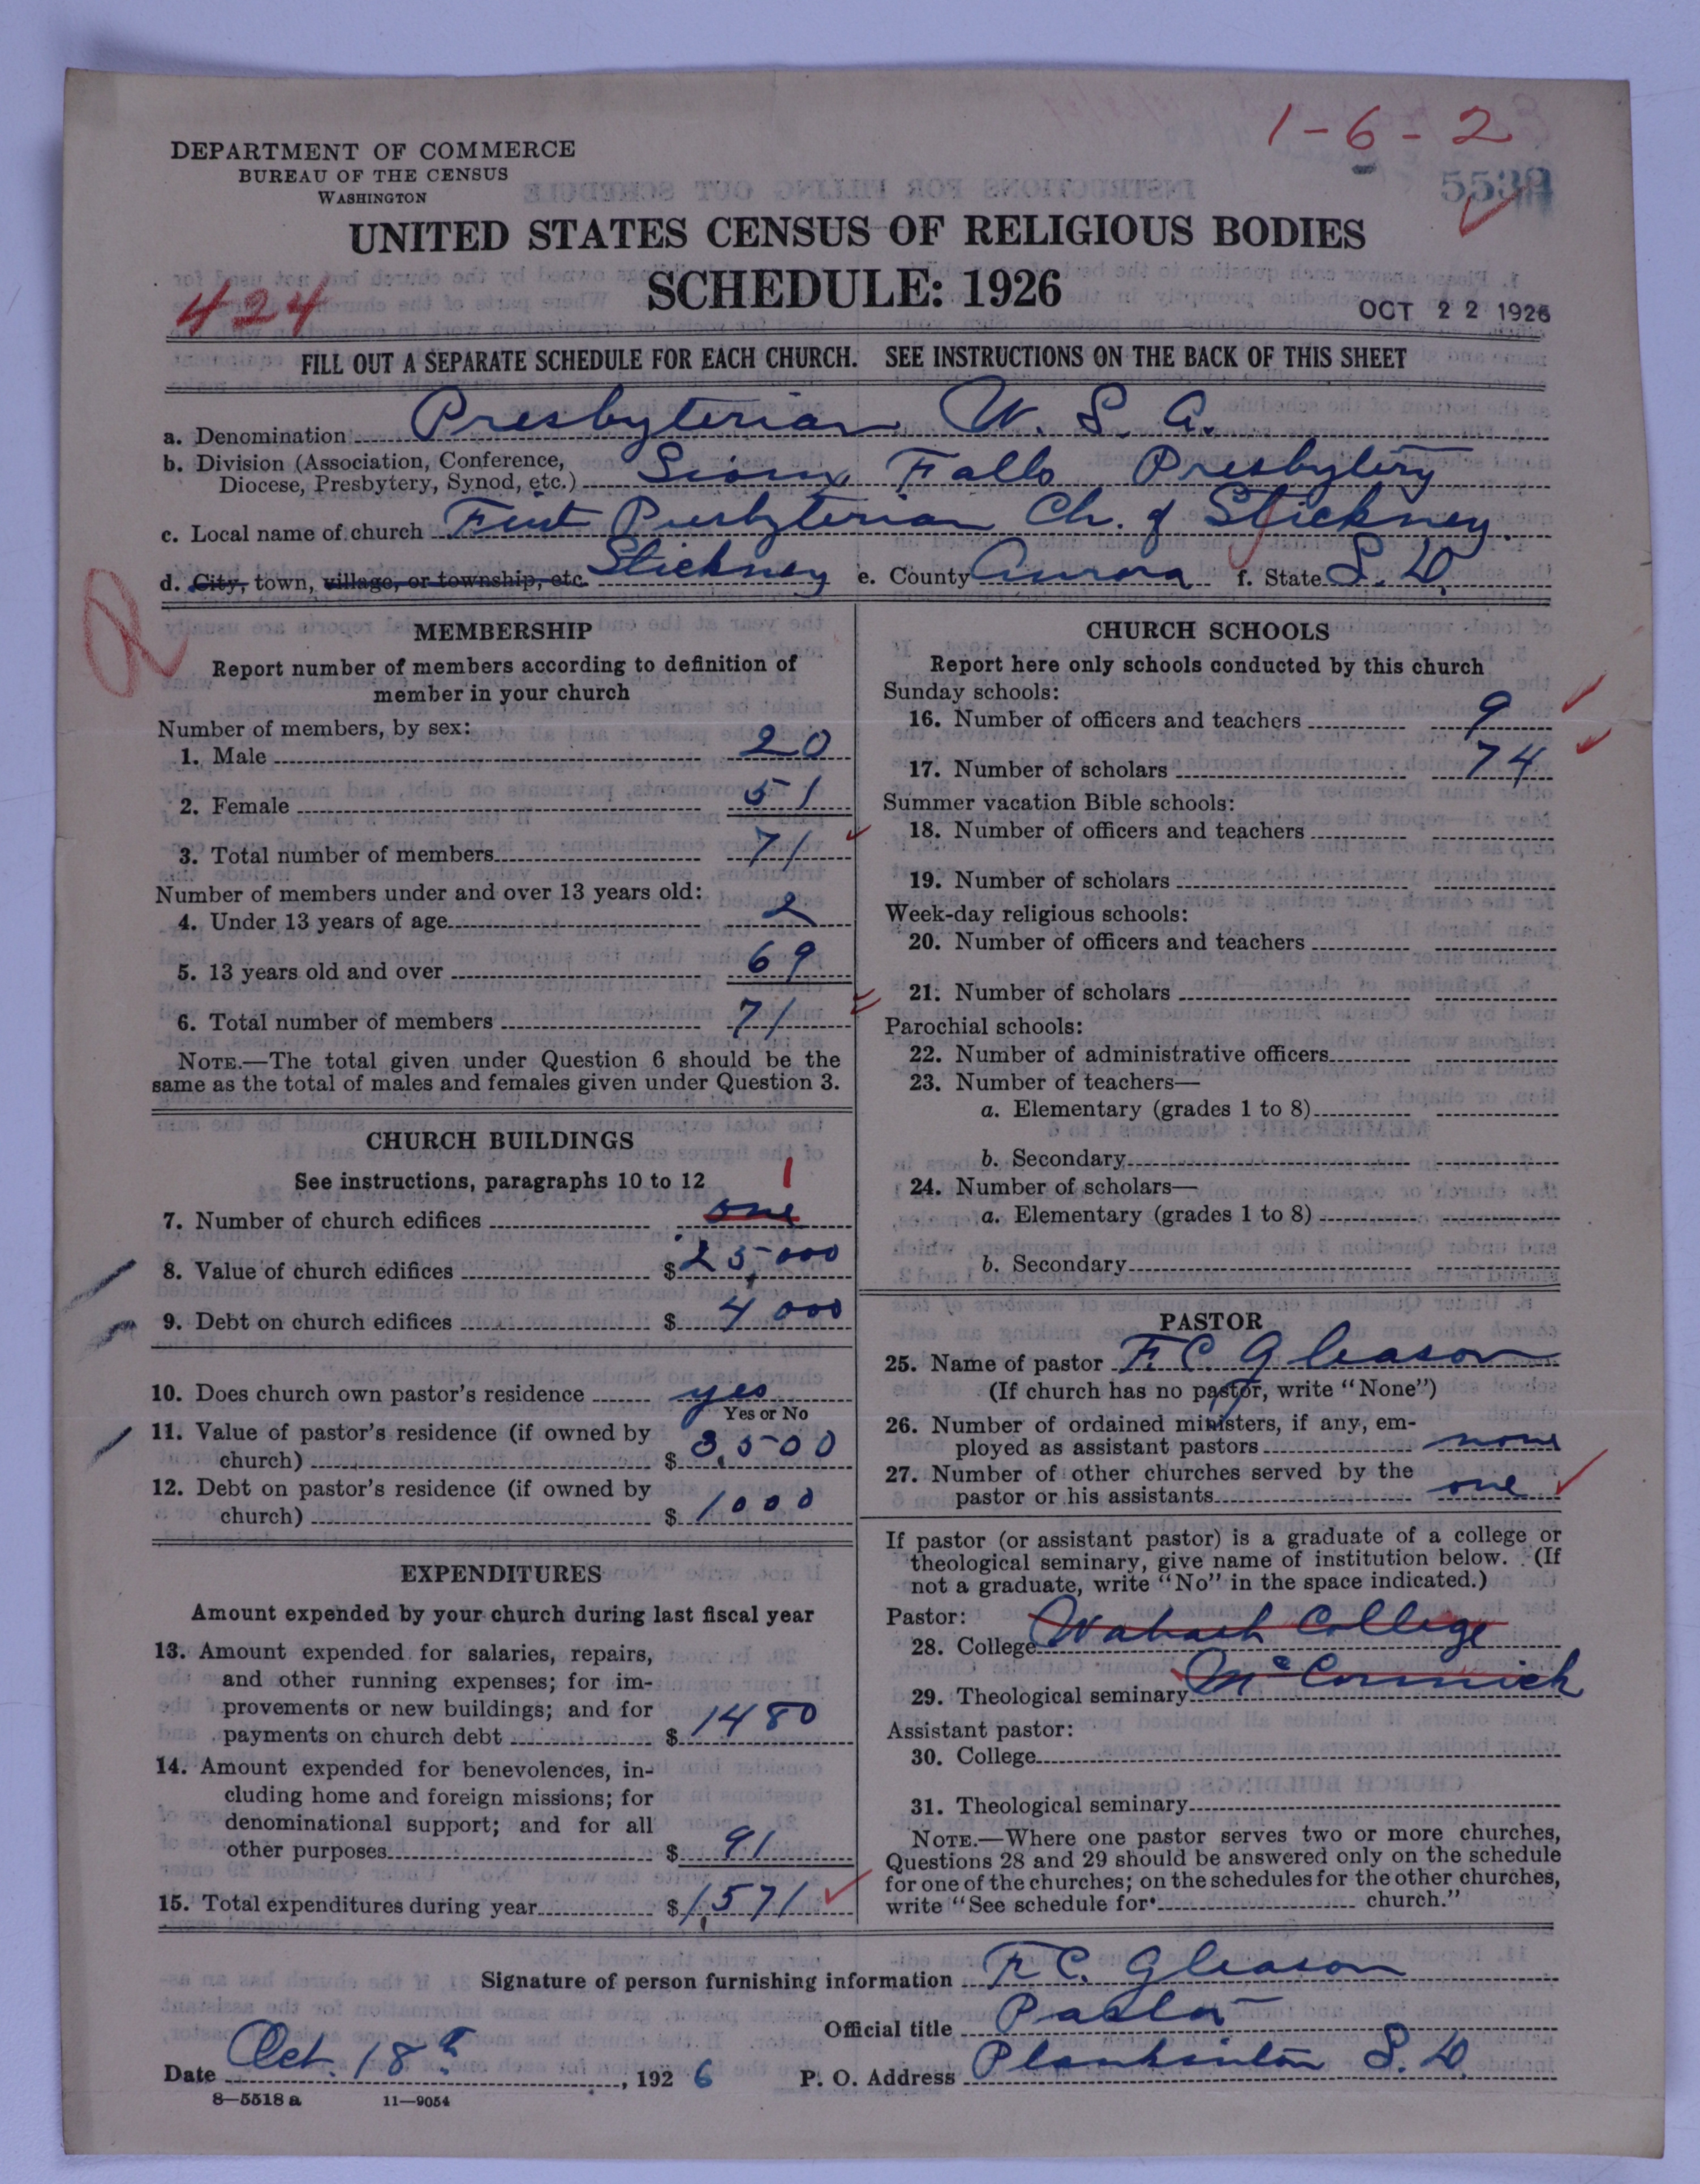 1-6-2
DEPARTMENT OF COMMERCE
BUREAU OF THE CENSUS
WASHINGTON
UNITED STATES CENSUS OF RELIGIOUS BODIES
SCHEDULE: 1926
424
OCT 22 1926
FILL OUT A SEPARATE SCHEDULE FOR EACH CHURCH. SEE INSTRUCTIONS ON THE BACK OF THIS SHEET
a. Denomination Presbyterian U. S. A.
b. Division (Association, Conference,
Diocese, Presbytery, Synod, etc.) Sioux Falls Presbytery
c. Local name of church First Presbyterian Ch. of Stickney.
d. City, town, village, or township, etc. Stickney e. County Aurora f. State S. D.
MEMBERSHIP
Report number of members according to definition of
member in your church
Number of members, by sex:
1. Male 20
2. Female 51
3. Total number of members 71
Number of members under and over 13 years old:
4. Under 13 years of age 2
5. 13 years old and over 69
6. Total number of members 71
NOTE.—The total given under Question 6 should be the
same as the total of males and females given under Question 3.
CHURCH BUILDINGS
See instructions, paragraphs 10 to 12
1
7. Number of church edifices one
8. Value of church edifices $ 25,000
9. Debt on church edifices $ 4000
10. Does church own pastor's residence yes
Yes or No
11. Value of pastor's residence (if owned by
church) $ 3,500
12. Debt on pastor's residence (if owned by
church) $ 1000
EXPENDITURES
Amount expended by your church during last fiscal year
13. Amount expended for salaries, repairs,
and other running expenses; for im-
provements or new buildings; and for
payments on church debt $ 1480
14. Amount expended for benevolences, in-
cluding home and foreign missions; for
denominational support; and for all
other purposes $ 91
15. Total expenditures during year $ 1,571
CHURCH SCHOOLS
Report here only schools conducted by this church
Sunday schools:
16. Number of officers and teachers 9
17. Number of scholars 74
Summer vacation Bible schools:
18. Number of officers and teachers
19. Number of scholars
Week-day religious schools:
20. Number of officers and teachers
21. Number of scholars
Parochial schools:
22. Number of administrative officers
23. Number of teachers—
a. Elementary (grades 1 to 8)
b. Secondary
24. Number of scholars—
a. Elementary (grades 1 to 8)
b. Secondary
PASTOR
25. Name of pastor F. C. Gleason
(If church has no pastor, write "None")
26. Number of ordained ministers, if any, em-
ployed as assistant pastors none
27. Number of other churches served by the
pastor or his assistants one
If pastor (or assistant pastor) is a graduate of a college or
theological seminary, give name of institution below. (If
not a graduate, write "No" in the space indicated.)
Pastor:
28. College Wabash College
29. Theological seminary McCormick
Assistant pastor:
30. College
31. Theological seminary
NOTE.—Where one pastor serves two or more churches,
Questions 28 and 29 should be answered only on the schedule
for one of the churches; on the schedules for the other churches,
write "See schedule for church."
Signature of person furnishing information F. C. Gleason
Official title Pastor
Date Oct. 18th, 1926 P. O. Address Plankinton S. D.
8-5518 a 11-9054